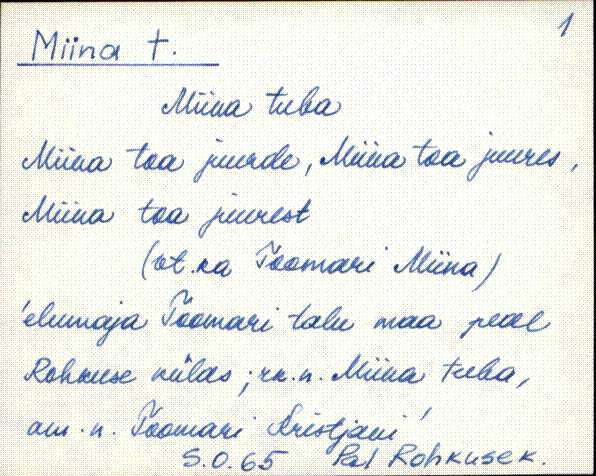 1
Miina t.
Miina tuba
Miina toa juurde, Miina toa juures,
Miina toa juurest
(vt. ka Toomari Miina)
'elumaja Toomari talu maa peal
Rohkuse külas; rk. n. Miina tuba,
am. n. Toomari Kristjani'
S.O. 65 Pal Rohkuse k.